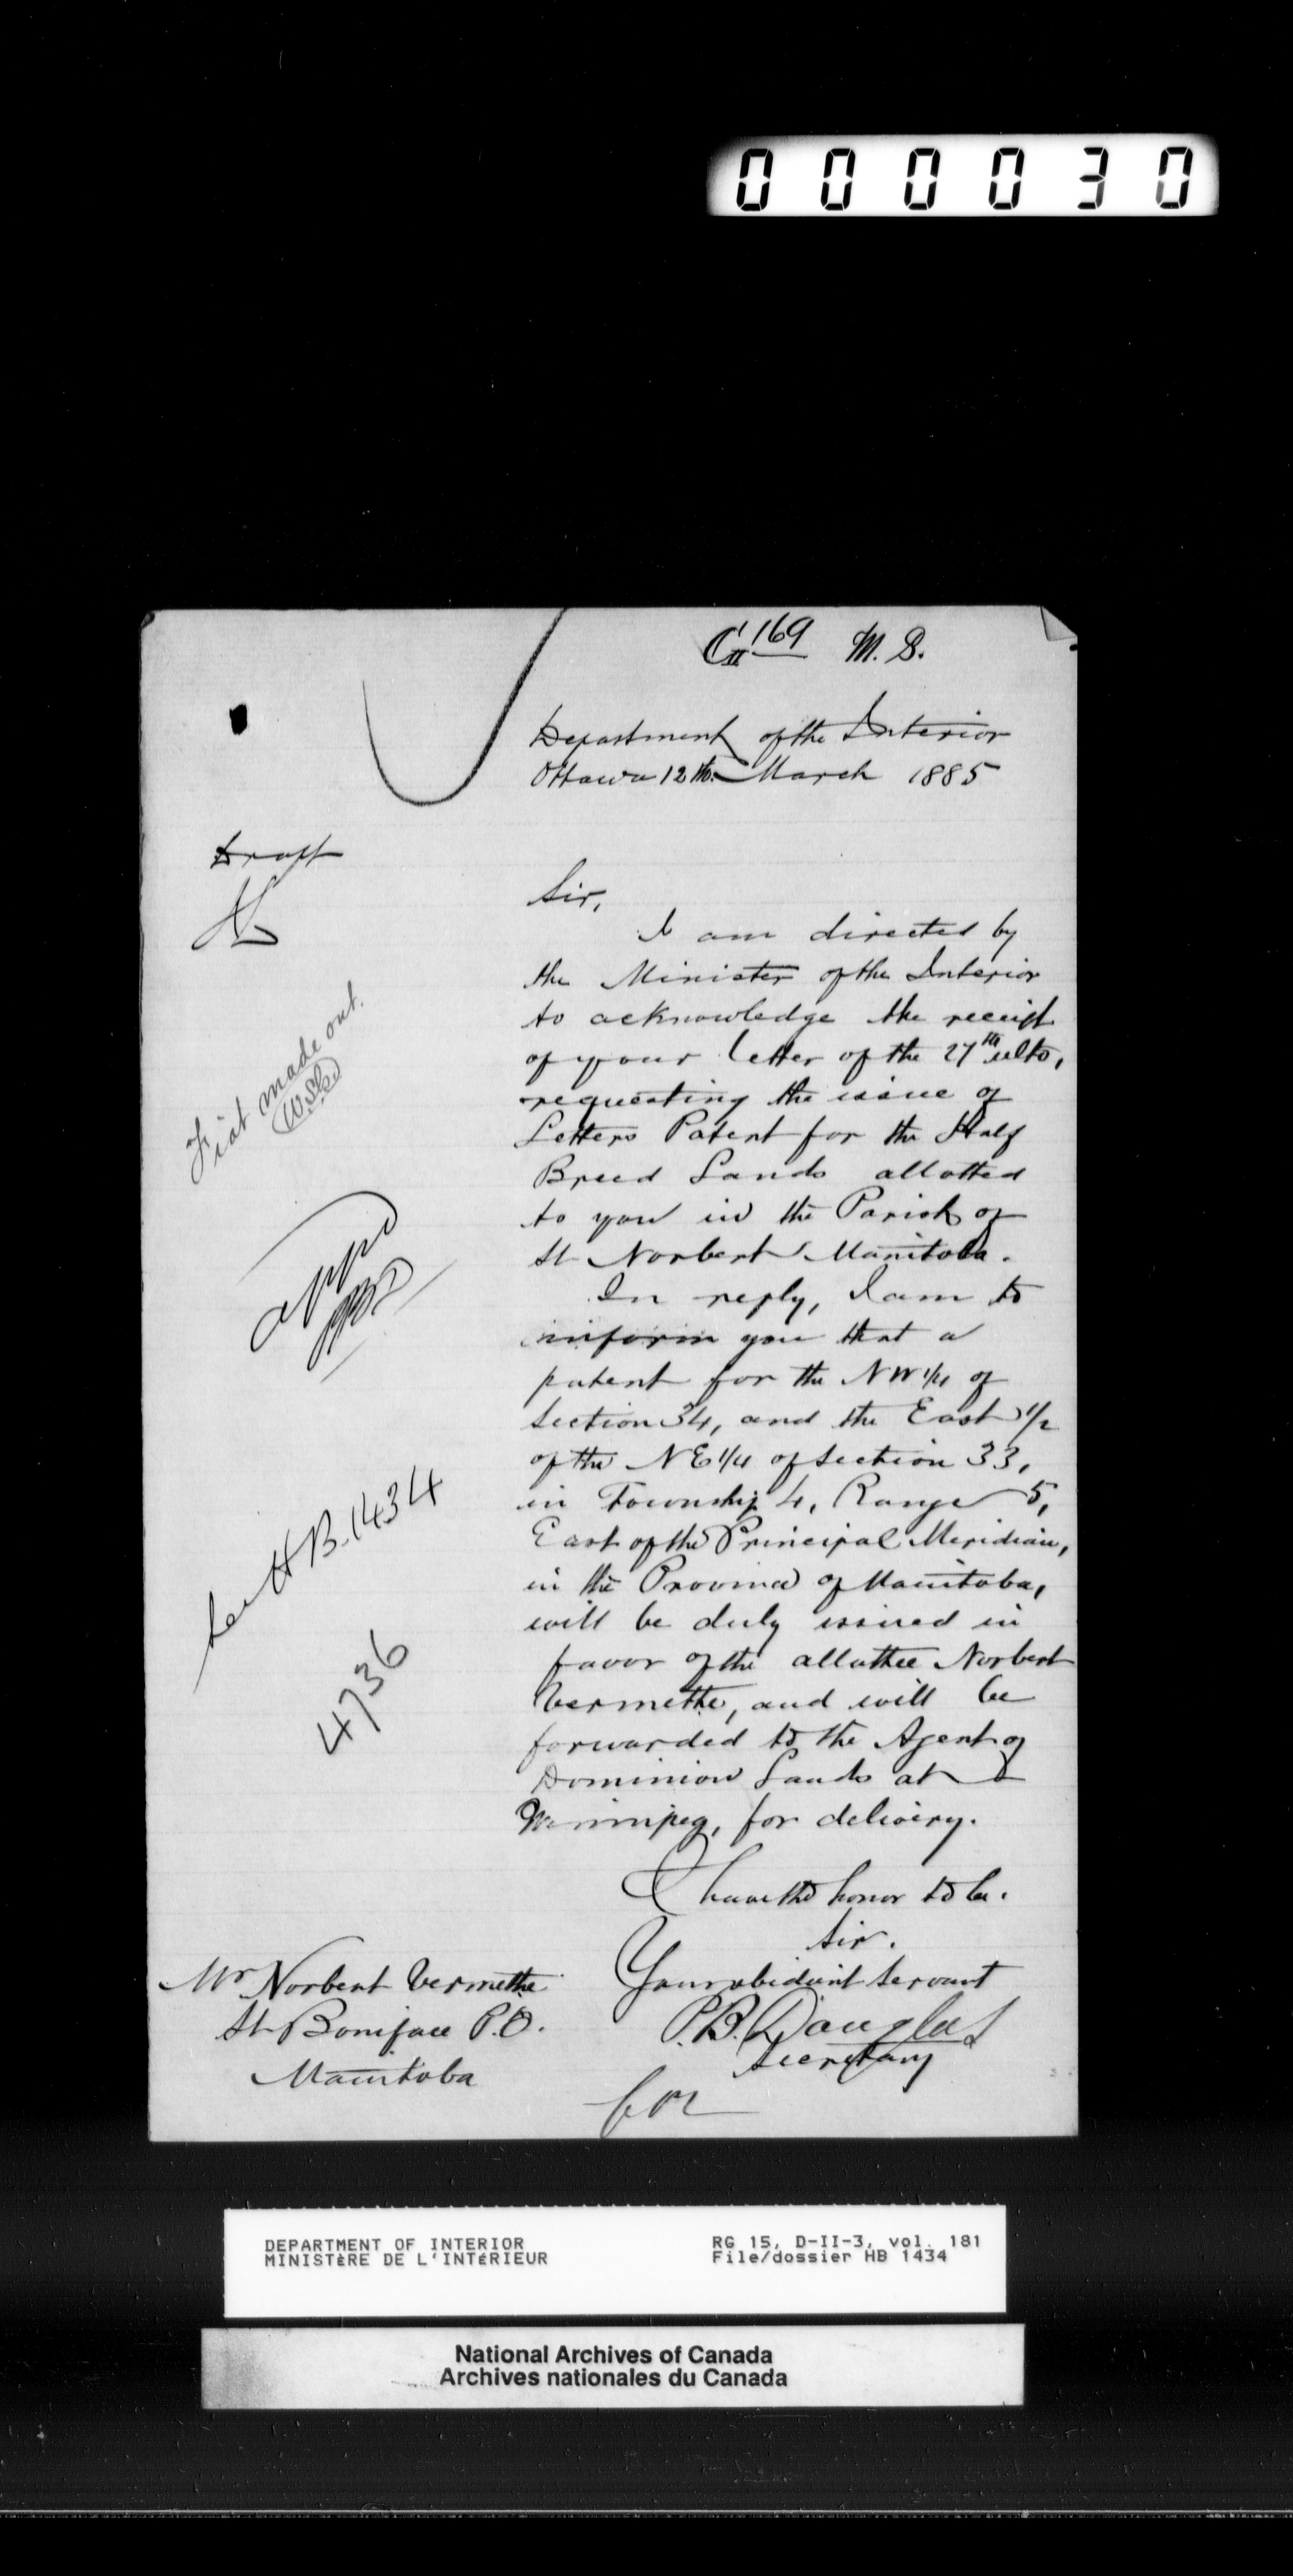 000030
169 M. S.
Department of the Interior
Ottawa 12th. March 1885
Draft
Sir,
I am directed by
the Minister of the Interior
to acknowledge the receipt
of your letter of the 27th ulto,
requesting the issue of
Letters Patent for the Half
Breed Lands allotted
to you in the Parish of
St Norbert Manitoba.
In reply, I am to
inform you that a
patent for the NW 1/4 of
Section 34, and the East 1/2
of the NE 1/4 of Section 33,
in Township 4, Range 5,
East of the Principal Meridian,
in the Province of Manitoba,
will be duly issued in
favor of the allottee Norbert
Vermette, and will be
forwarded to the Agent of
Dominion Lands at
Winnipeg, for delivery.
I have the honor to be.
Sir.
Your obedient Servant
P.B. Douglas
Secretary
Mr Norbert Vermette
St Boniface P.O.
Manitoba
Fiat made out.
appd
See HB. 1434
4736
DEPARTMENT OF INTERIOR
MINISTÈRE DE L'INTÉRIEUR
RG 15, D-II-3, vol. 181
File/dossier HB 1434
National Archives of Canada
Archives nationales du Canada